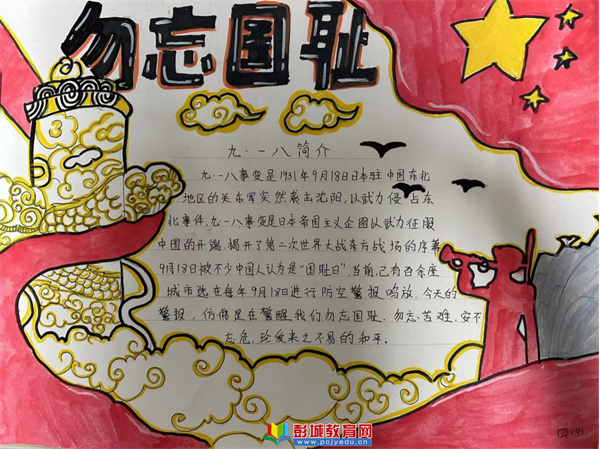 勿忘国耻
九·一八简介
九·一八事变是1931年9月18日日本驻中国东北
地区的关东军突然袭击沈阳,以武力侵占东
北事件.九·一八事变是日本帝国主义企图以武力征服
中国的开端,揭开了第二次世界大战东方战场的序幕
9月18日被不少中国人认为是“国耻日”.当前,已有百余座
城市选在每年9月18日进行防空警报鸣放.今天的
警报,仿佛是在警醒我们勿忘国耻、勿忘苦难,安不
忘危,珍爱来之不易的和平。
彭城教育网
www.pcjyedu.cn